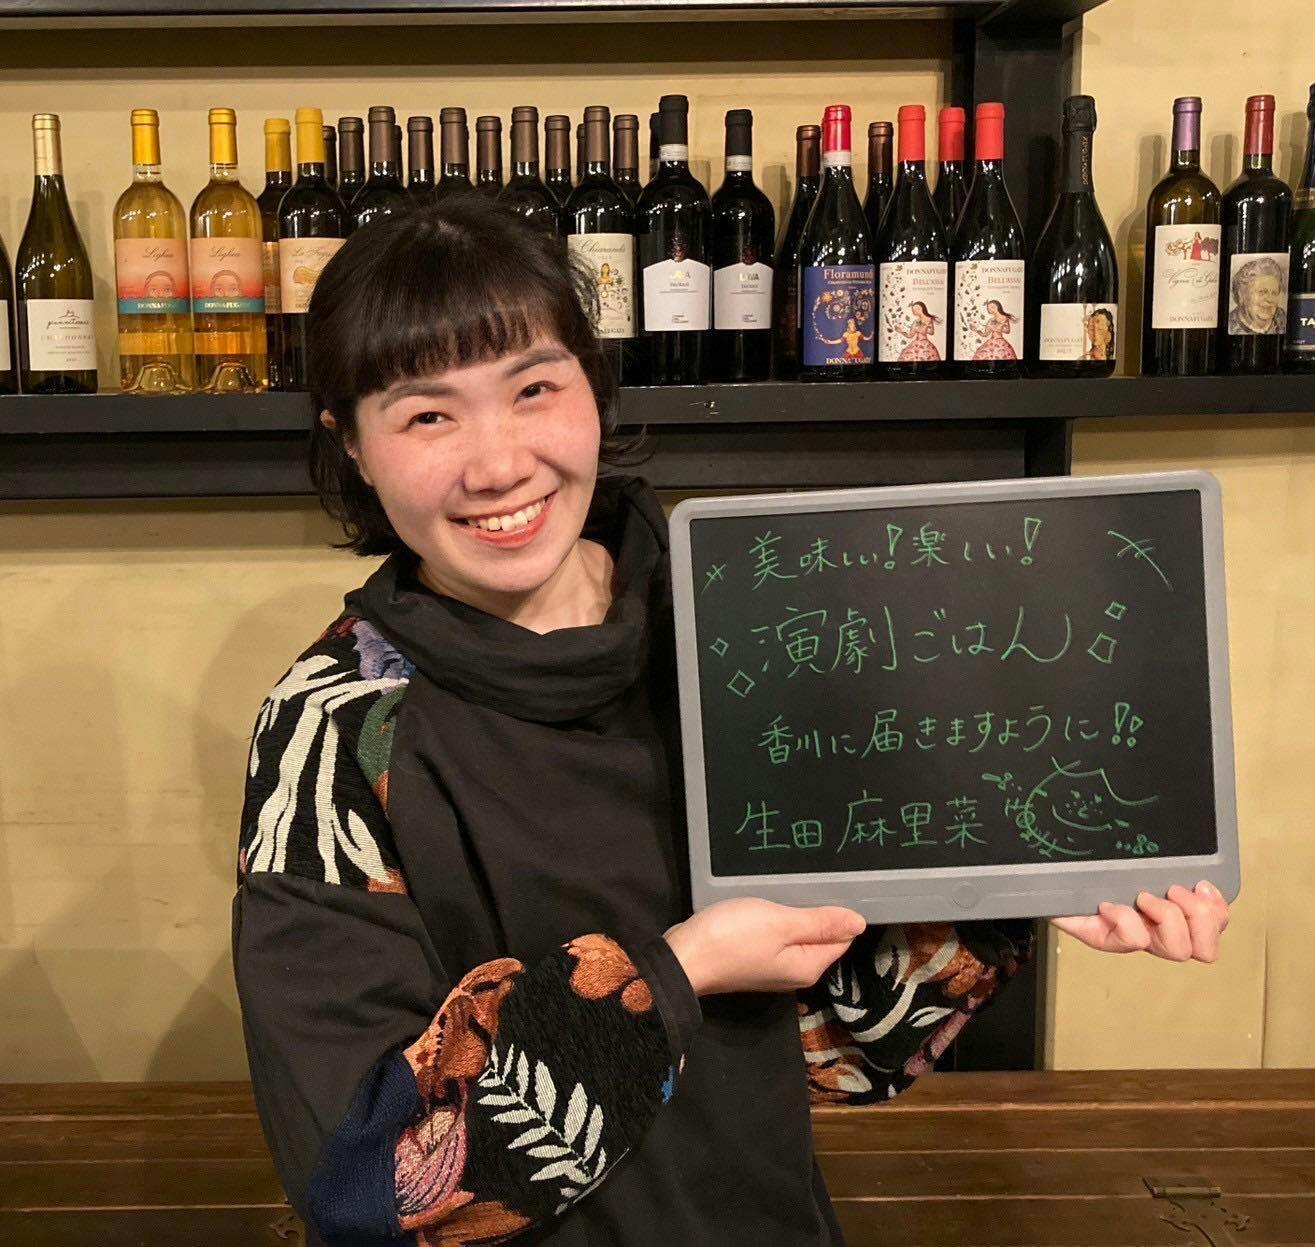 美味しい!楽しい!
演劇ごはん
香川に届きますように!!
生田麻里菜
Lighea
DONNAFUGATA
Lighea
DONNAFUGATA
Chiarandà
Floramundi
DONNAFUGATA
DONNAFUGATA
BELL'ASSAI
DONNAFUGATA
BELL'ASSAI
DONNAFUGATA